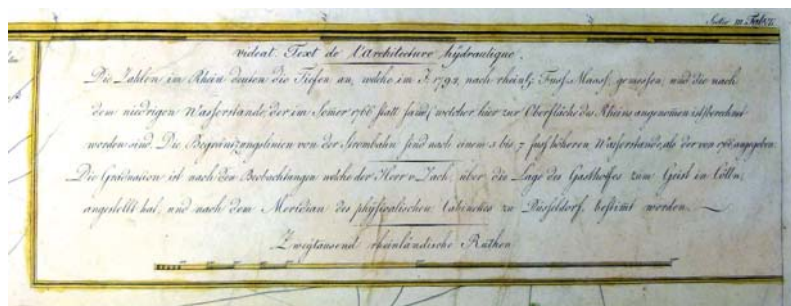 Sectio III Tab: I.
videat. Text de l'architecture hydraulique.
Die Zahlen im Rhein deuten die Tiefen an, welche im J. 179 nach rheinl: Fuss-Maass gemessen, und die nach
dem niedrigen Wasserstande, der im Somer 1766 statt fand, welcher hier zur Oberfläche des Rheins angenomen ist, berechnet
worden sind. Die Begränzungslinien von der Strombahn sind nach einem bis 7 fuss höheren Wasserstande, als der von 1766 angegeben.
Die Graduation ist nach den Beobachtungen welche der Herr v. Zach, über die Lage des Gasthofes zum Geist in Cölln,
angestellt hat, und nach dem Meridian des physicalischen Cabinettes zu Düsseldorf, bestimt worden.
Zweytausend rheinländische Ruthen